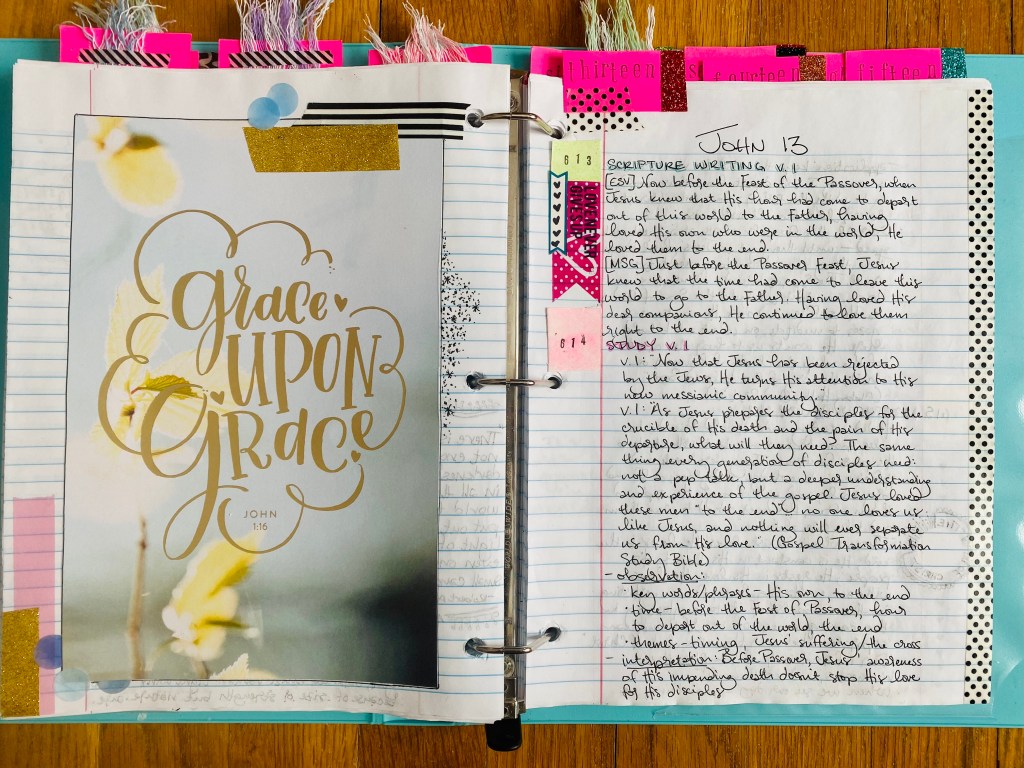 thirteen
fourteen
fifteen
grace
UPON
GRace
JOHN
1:16
JOHN 13
613
LOVE NEVER
GIVES UP
614
SCRIPTURE WRITING v. 1
[ESV] Now before the Feast of the Passover, when
Jesus knew that His hour had come to depart
out of this world to the Father, having
loved His own who were in the world, He
loved them to the end.
[MSG] Just before the Passover Feast, Jesus
knew that the time had come to leave this
world to go to the Father. Having loved His
dear companions, He continued to love them
right to the end.
STUDY v. 1
v. 1: "Now that Jesus has been rejected
by the Jews, He turns His attention to His
new messianic community.
v. 1: "As Jesus prepares the disciples for the
crucible of His death and the pain of His
departure, what will they need? The same
thing every generation of disciples need:
not a pep talk, but a deeper understanding
and experience of the gospel. Jesus loved
these men "to the end" no one loves us
like Jesus, and nothing will ever separate
us from His love." (Gospel Transformation
Study Bible)
- observation:
· key words/phrases - His own, to the end
· time - before the Feast of Passover, hour
to depart out of the world, the end
· themes - timing, Jesus' suffering/the cross
- interpretation: Before Passover, Jesus' awareness
of His impending death doesn't stop His love
for His disciples